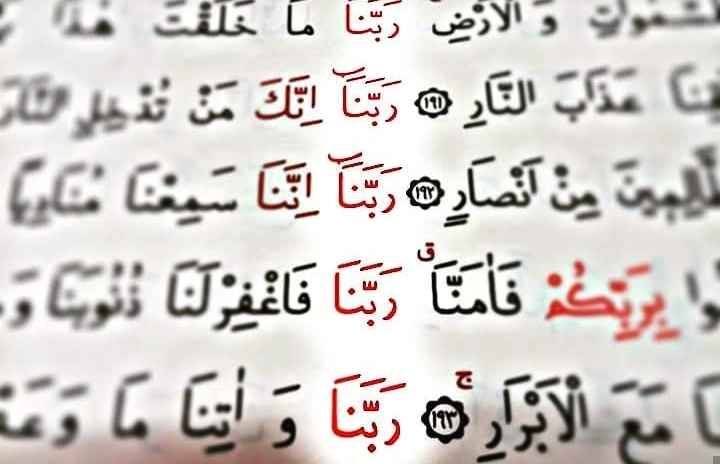 وَ الْاَرْضِ رَبَّنَا مَا خَلَقْتَ هٰذَا
عَذَابَ النَّارِ ﴿١٩١﴾ رَبَّنَا اِنَّكَ مَنْ تُدْخِلِ النَّارَ
مِنْ اَنْصَارٍ ﴿١٩٢﴾ رَبَّنَا اِنَّنَا سَمِعْنَا مُنَادِيًا
بِرَبِّكُمْ فَاٰمَنَّا ۖق رَبَّنَا فَاغْفِرْلَنَا ذُنُوْبَنَا وَ
مَعَ الْاَبْرَارِ ۚ ﴿١٩٣﴾ رَبَّنَا وَ اٰتِنَا مَا